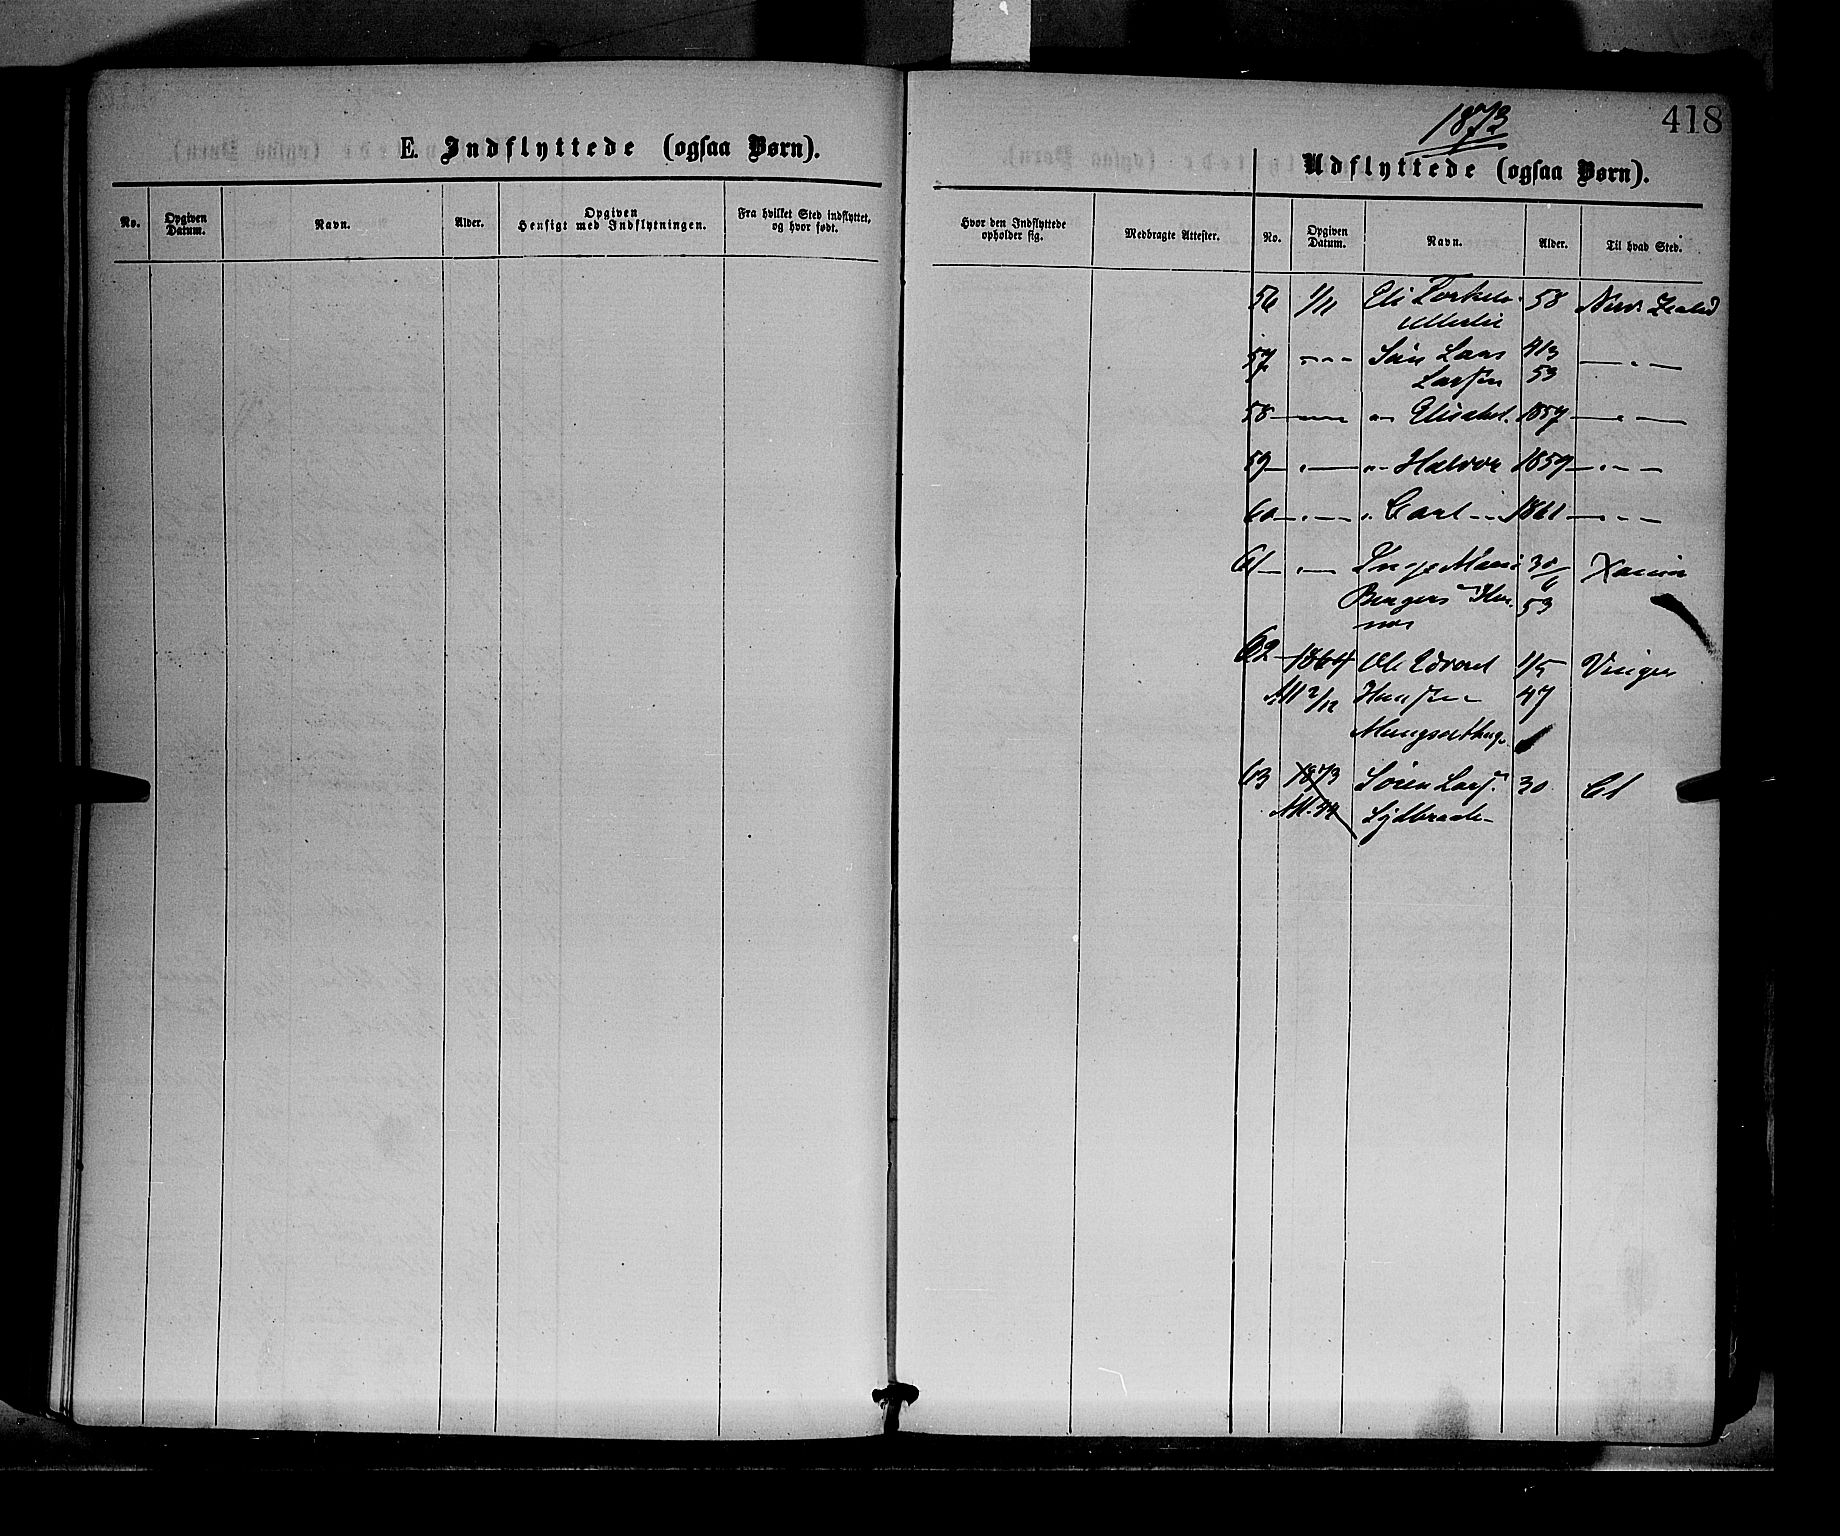 418
1873
E. Indflyttede (ogsaa Børn).
Udflyttede (ogsaa Børn).
No.
Opgiven Datum.
Navn.
Alder.
Opgiven Hensigt med Indflytningen.
Fra hvilket Sted indflyttet, og hvor født.
Hvor den Indflyttede opholder sig.
Medbragte Attester.
No.
Opgiven Datum.
Navn.
Alder.
Til hvad Sted.
56 1/11 Eli 58 New Zealnd
57 - - - Søn Lars 4/3 — " —
Larsen 53
58 — — " — Elisabet. 1857 — " —
59 — " — " — Halvor 1859 — " —
60 — " — " Carl — 1861 — " —
61 — " — Inge Marie 30/6
Bergers 53
62 1864 Ole Edvard 1/5 Vinger
Att 2/12 Hansen 47
63 1873 Sören Lars. 30
Att.